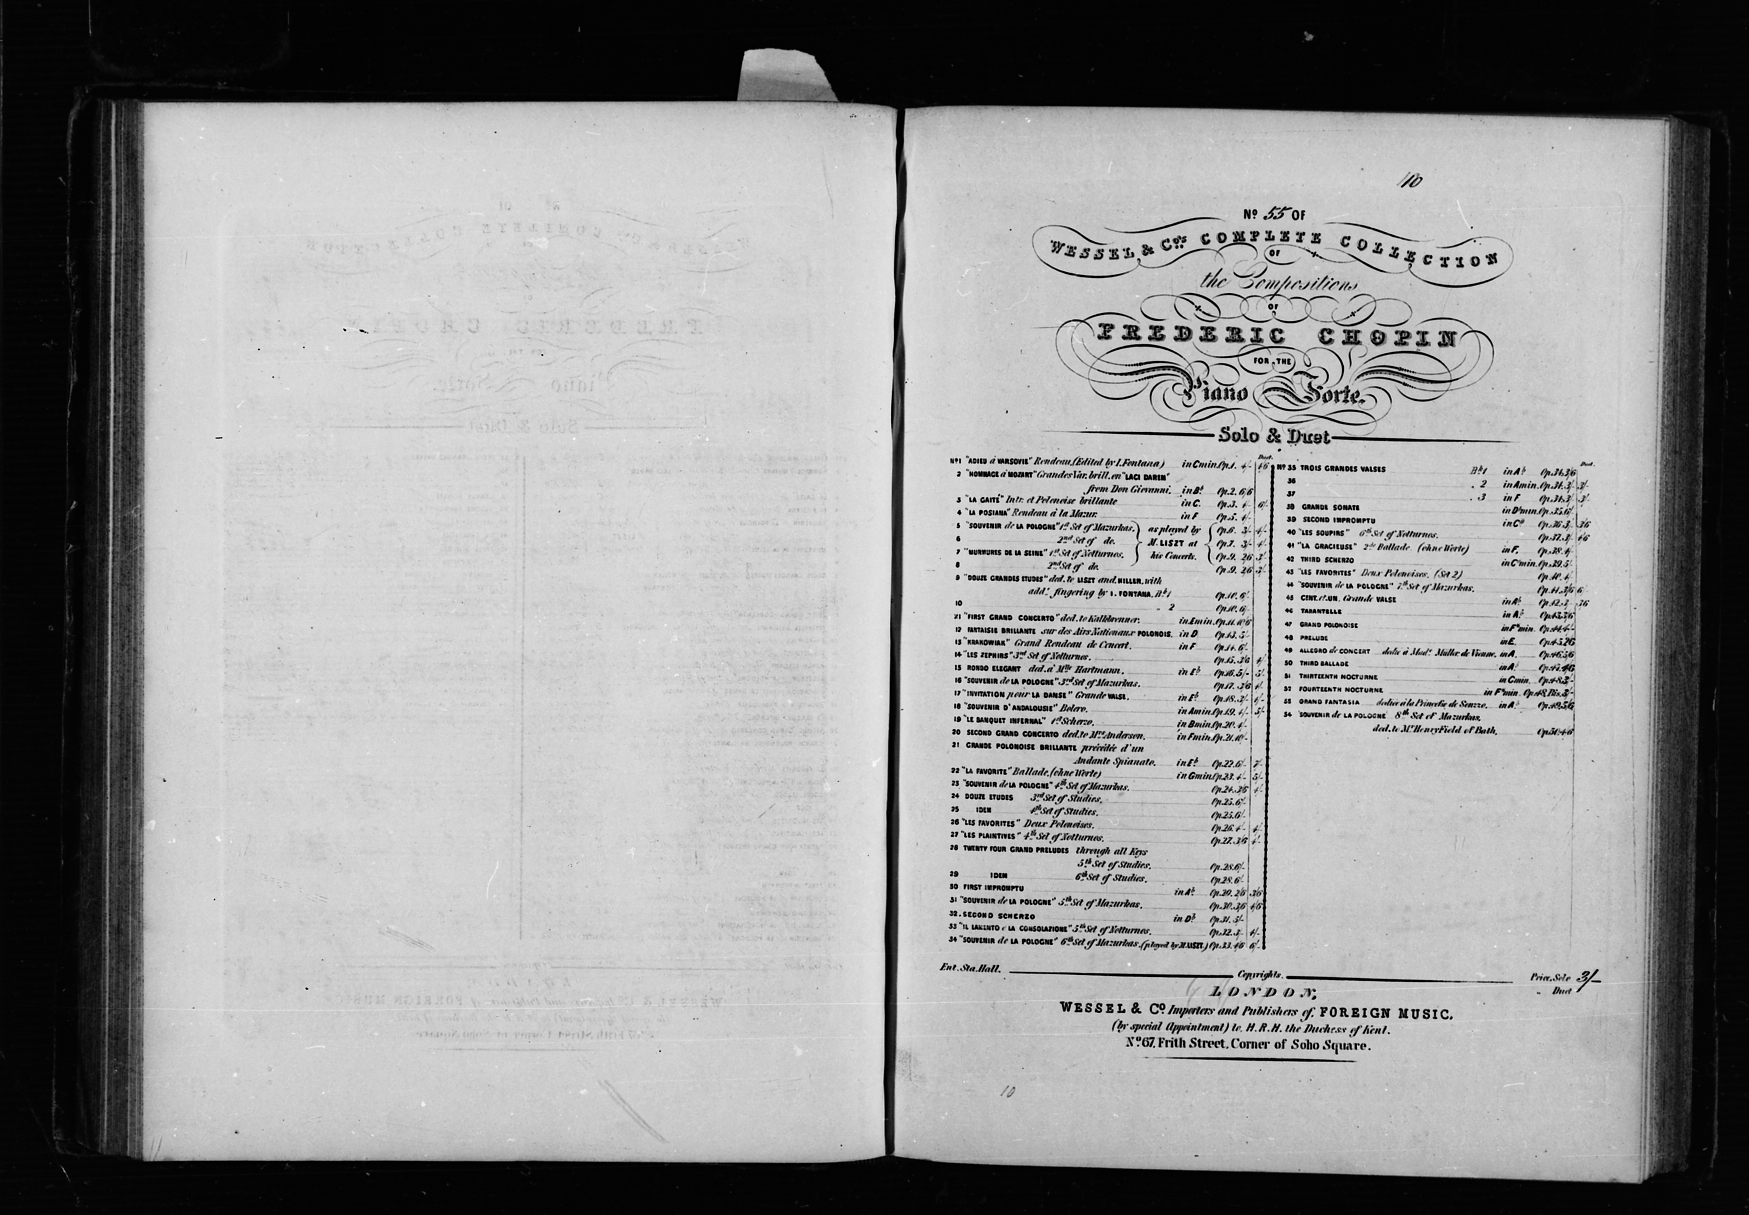 110
No 55 OF
WESSEL & Cos COMPLETE COLLECTION
OF
the Compositions
OF
FREDERIC CHOPIN
FOR THE
Piano Forte.
Solo & Duet
Duet.
No 1 "ADIEU à VARSOVIE" Rondeau, (Edited by I. Fontana) in C min. Op. 1. 4/- 4/6
2 "HOMMAGE à MOZART" Grandes Var. brill. on "LACI DAREM"
from Don Giovanni. in Bb Op. 2. 6/6
3 "LA GAITÉ" Intr. et Polonoise brillante in C. Op. 3. 4/- 6/-
4 "LA POSIANA" Rondeau à la Mazur. in F Op. 5. 4/-
5 "SOUVENIR de LA POLOGNE" 1st Set of Mazurkas. as played by Op. 6. 3/- 4/-
6 2nd Set of do. M. LISZT at Op. 7. 3/- 4/-
7 "MURMURES DE LA SEINE" 1st Set of Notturnos. his Concerts. Op. 9. 2/6 3/-
8 2nd Set of do. Op. 9. 2/6 3/-
9 "DOUZE GRANDES ETUDES" ded. to LISZT and HILLER, with
addl. fingering by I. FONTANA. Bk 1 Op. 10. 6/-
10 " 2 Op. 10. 6/-
11 "FIRST GRAND CONCERTO" ded. to Kalkbrenner. in E min. Op. 11. 10/6
12 FANTAISIE BRILLANTE sur des Airs Nationaux POLONOIS. in D Op. 13. 5/-
13 "KRAKOWIAK" Grand Rondeau de Concert. in F Op. 14. 6/-
14 "LES ZEPHIRS" 3rd Set of Notturnos. Op. 15. 3/6 4/-
15 RONDO ELEGANT ded. à Mlle Hartmann. in Eb Op. 16. 5/- 5/-
16 "SOUVENIR de LA POLOGNE" 3rd Set of Mazurkas. Op. 17. 3/6 4/-
17 "INVITATION pour LA DANSE" Grande VALSE. in Eb Op. 18. 3/- 4/-
18 "SOUVENIR D'ANDALOUSIE" Bolero. in A min. Op. 19. 4/- 5/-
19 "LE BANQUET INFERNAL" 1st Scherzo. in B min. Op. 20. 4/-
20 SECOND GRAND CONCERTO ded. to Mrs Anderson. in F min. Op. 21. 10/-
21 GRANDE POLONOISE BRILLANTE précédée d'un
Andante Spianato. in Eb Op. 22. 6/- 7/-
22 "LA FAVORITE" Ballade, (ohne Worte) in G min. Op. 23. 4/- 5/-
23 "SOUVENIR de LA POLOGNE" 4th Set of Mazurkas. Op. 24. 3/6 4/-
24 DOUZE ETUDES 3rd Set of Studies. Op. 25. 6/-
25 IDEM 4th Set of Studies. Op. 25. 6/-
26 "LES FAVORITES" Deux Polonoises. Op. 26. 4/- 4/-
27 "LES PLAINTIVES" 4th Set of Notturnos. Op. 27. 3/6 4/-
28 TWENTY FOUR GRAND PRELUDES through all Keys
5th Set of Studies. Op. 28. 6/-
29 IDEM 6th Set of Studies. Op. 28. 6/-
30 FIRST IMPROMPTU in Ab Op. 29. 2/6 3/6
31 "SOUVENIR de LA POLOGNE" 5th Set of Mazurkas. Op. 30. 3/6 4/6
32. SECOND SCHERZO in Db Op. 31. 5/-
33 "IL LAMENTO e LA CONSOLAZIONE" 5th Set of Notturnos. Op. 32. 3/- 4/-
34 "SOUVENIR de LA POLOGNE" 6th Set of Mazurkas. (played by M. LISZT.) Op. 33. 4/6 6/-
Duet.
No 35 TROIS GRANDES VALSES Bk 1 in Ab Op. 34. 3/6
36 " 2 in A min. Op. 34. 3/- 3/-
37 " 3 in F Op. 34. 3/- 3/-
38 GRANDE SONATE in Db min. Op. 35. 6/-
39 SECOND IMPROMPTU in C# Op. 36. 3/- 3/6
40 "LES SOUPIRS" 6th Set of Notturnos. Op. 37. 3/- 4/6
41 "LA GRACIEUSE" 2de Ballade. (ohne Worte) in F. Op. 38. 4/-
42 THIRD SCHERZO in C# min. Op. 39. 5/-
43 "LES FAVORITES" Deux Polonoises. (Set 2) Op. 40. 4/-
44 "SOUVENIR de LA POLOGNE" 7th Set of Mazurkas. Op. 41. 3/6 6
45 CENT. et. UN. Grande VALSE in Ab Op. 42. 3/- 3/6
46 TARANTELLE in Ab Op. 43. 3/6
47 GRAND POLONOISE in F# min. Op. 44. 4/-
48 PRELUDE in E. Op. 45. 2/6
49 ALLEGRO de CONCERT dedié à Madle Müller de Vienne. in A. Op. 46. 5/6
50 THIRD BALLADE in Ab Op. 47. 4/6
51 THIRTEENTH NOCTURNE in C min. Op. 48. 3/-
52 FOURTEENTH NOCTURNE in F# min. Op. 48. Bis. 3/-
53 GRAND FANTASIA dediée à la Princesse de Souzzo. in Ab Op. 49. 5/6
54 SOUVENIR de LA POLOGNE 8th Set of Mazurkas,
ded. to Mr. Henry Field of Bath. Op. 50. 4/6
Ent. Sta. Hall. Copyrights. Price. Solo 3/-
" Duet
LONDON,
WESSEL & Co Importers and Publishers of FOREIGN MUSIC.
(by special Appointment) to H. R. H. the Duchess of Kent.
No 67, Frith Street, Corner of Soho Square.
10